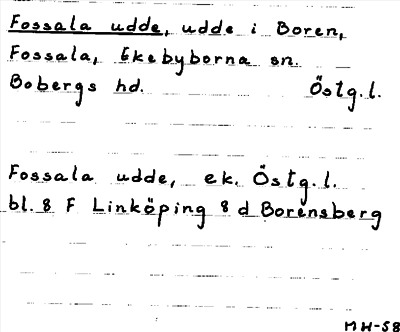 Fossala udde, udde i Boren,
Fossala, Ekebyborna sn.
Bobergs hd. Östg.l.
Fossala udde, ek. Östg.l.
bl. 8 F Linköping 8 d Borensberg
MH-58